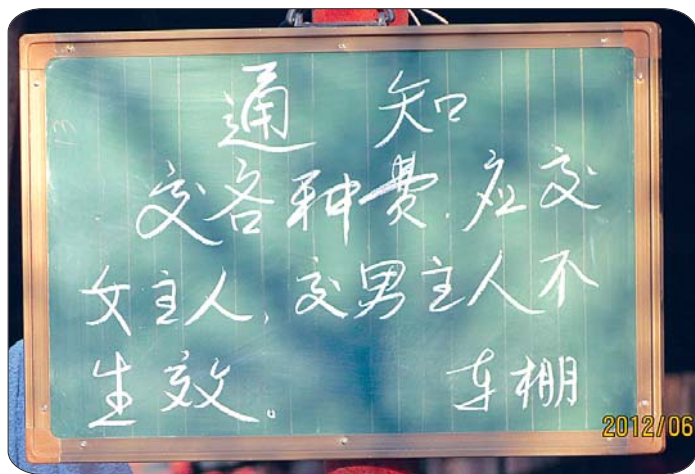 通 知
交各种费.应交
女主人,交男主人不
生效。 车棚
2012/06